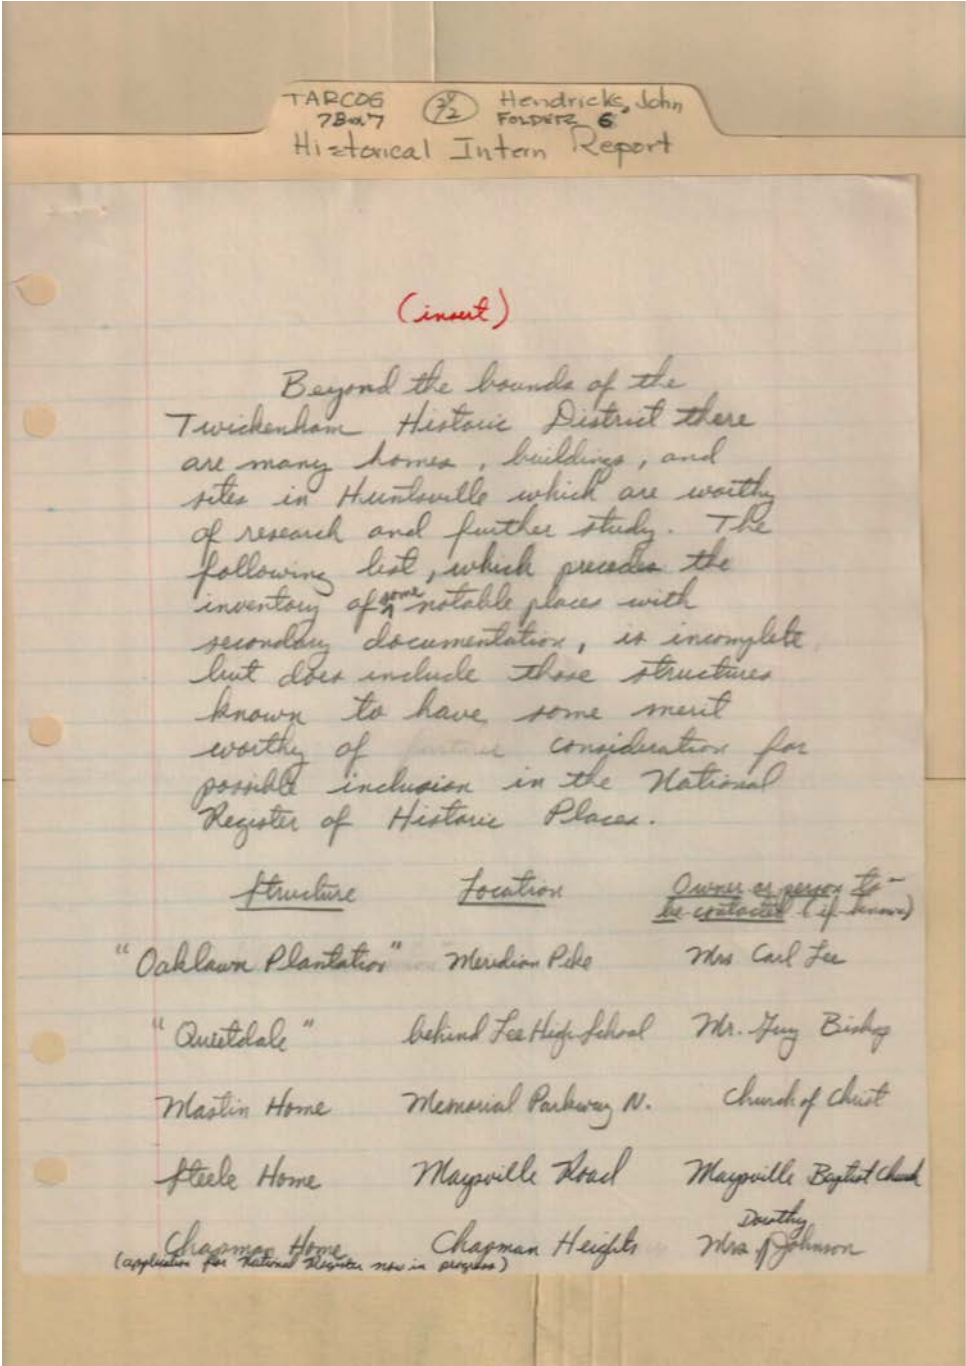 TARCOG
7Box7
Hendricks, John
FOLDER 6
Historical Intern Report
(insert)
Beyond the bounds of the
Twickenham Historic District there
are many homes, buildings, and
sites in Huntsville which are worthy
of research and further study. The
following list, which precedes the
inventory of some notable places with
secondary documentation, is incomplete
but does include those structures
known to have some merit
worthy of consideration for
possible inclusion in the National
Register of Historic Places.
Structure Location Owner or person to
be contacted (if known)
"Oaklawn Plantation" Meridian Pike Mrs Carl Lee
"Quietdale" behind Lee High School Mr. Guy Bishop
Mastin Home Memorial Parkway N. Church of Christ
Steele Home Maysville Road Maysville Baptist Church
Chapman Home Chapman Heights Mrs Dorothy Johnson
(application for National Register now in progress)